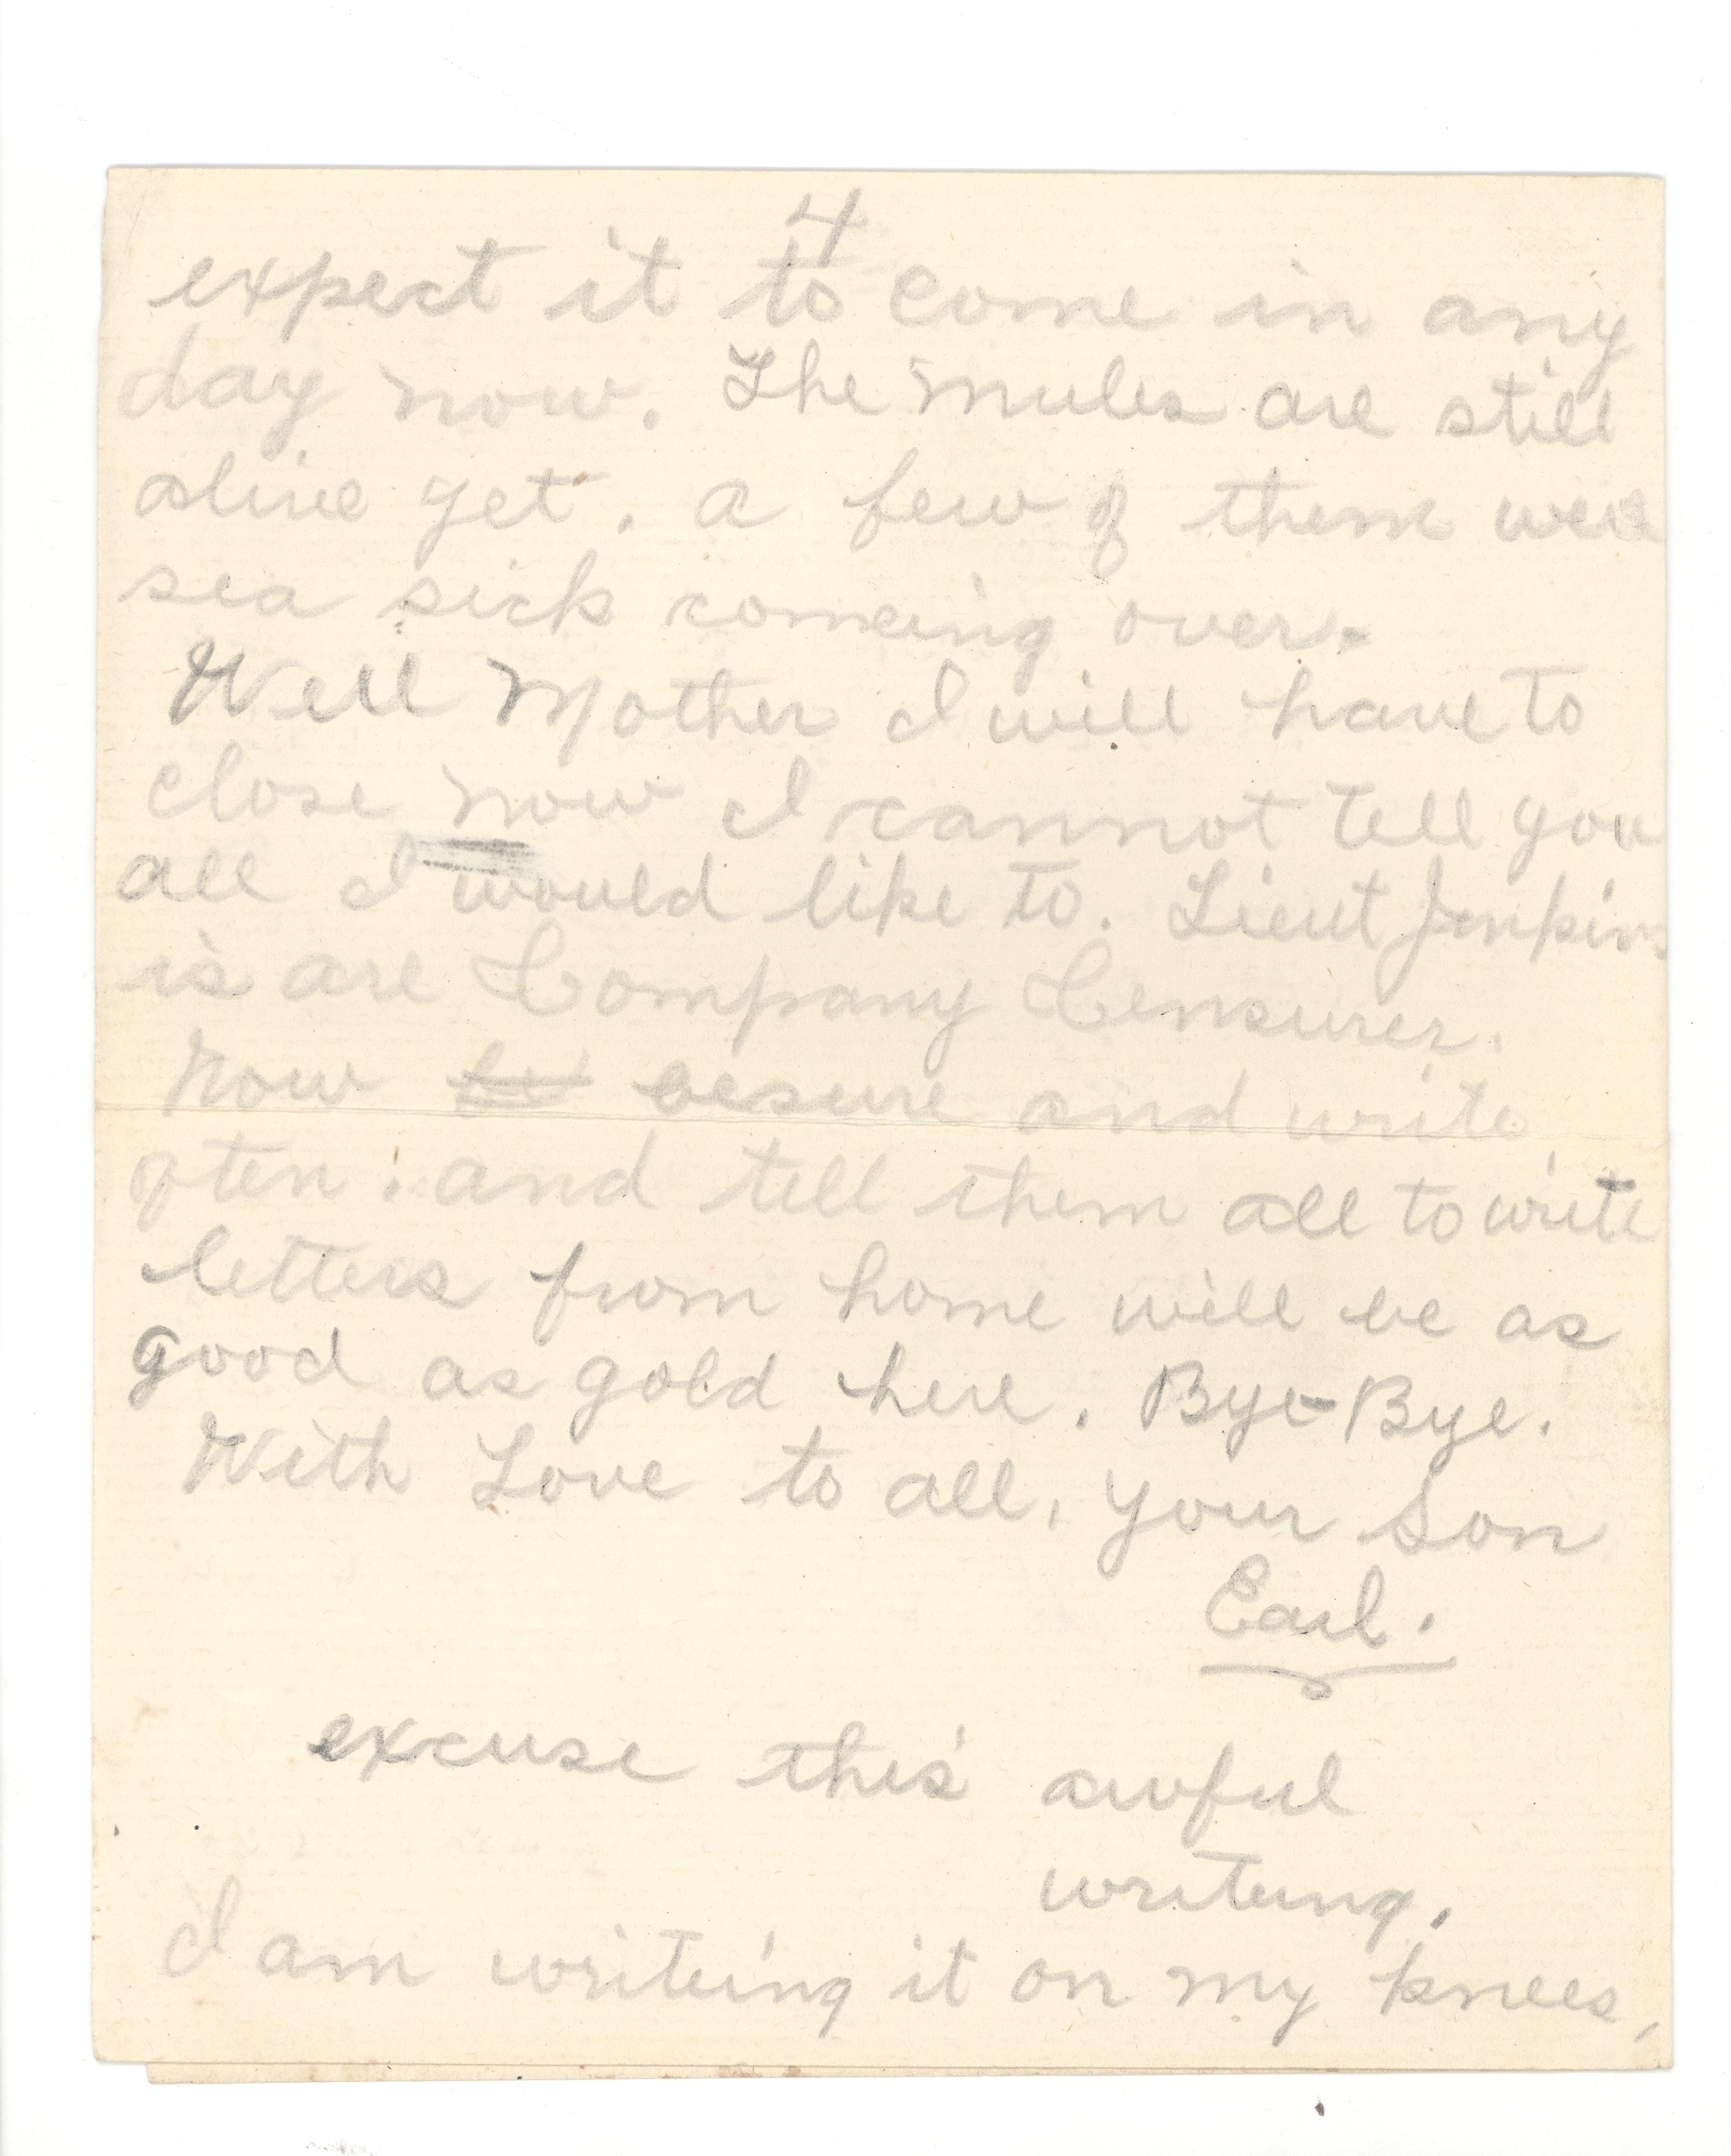 4
expect it to come in any
day now. The mules are still
alive yet. a few of them were
sea sick comeing over.
Well Mother I will have to
close now I cannot tell you
all I would like to. Lieut Jenkins
is are Company Censurer.
Now be besure and write
often. and tell them all to write
letters from home will be as
good as gold here. Bye-Bye.
With Love to all, your Son
Earl.
excuse this awful
writeing.
I am writeing it on my knees,